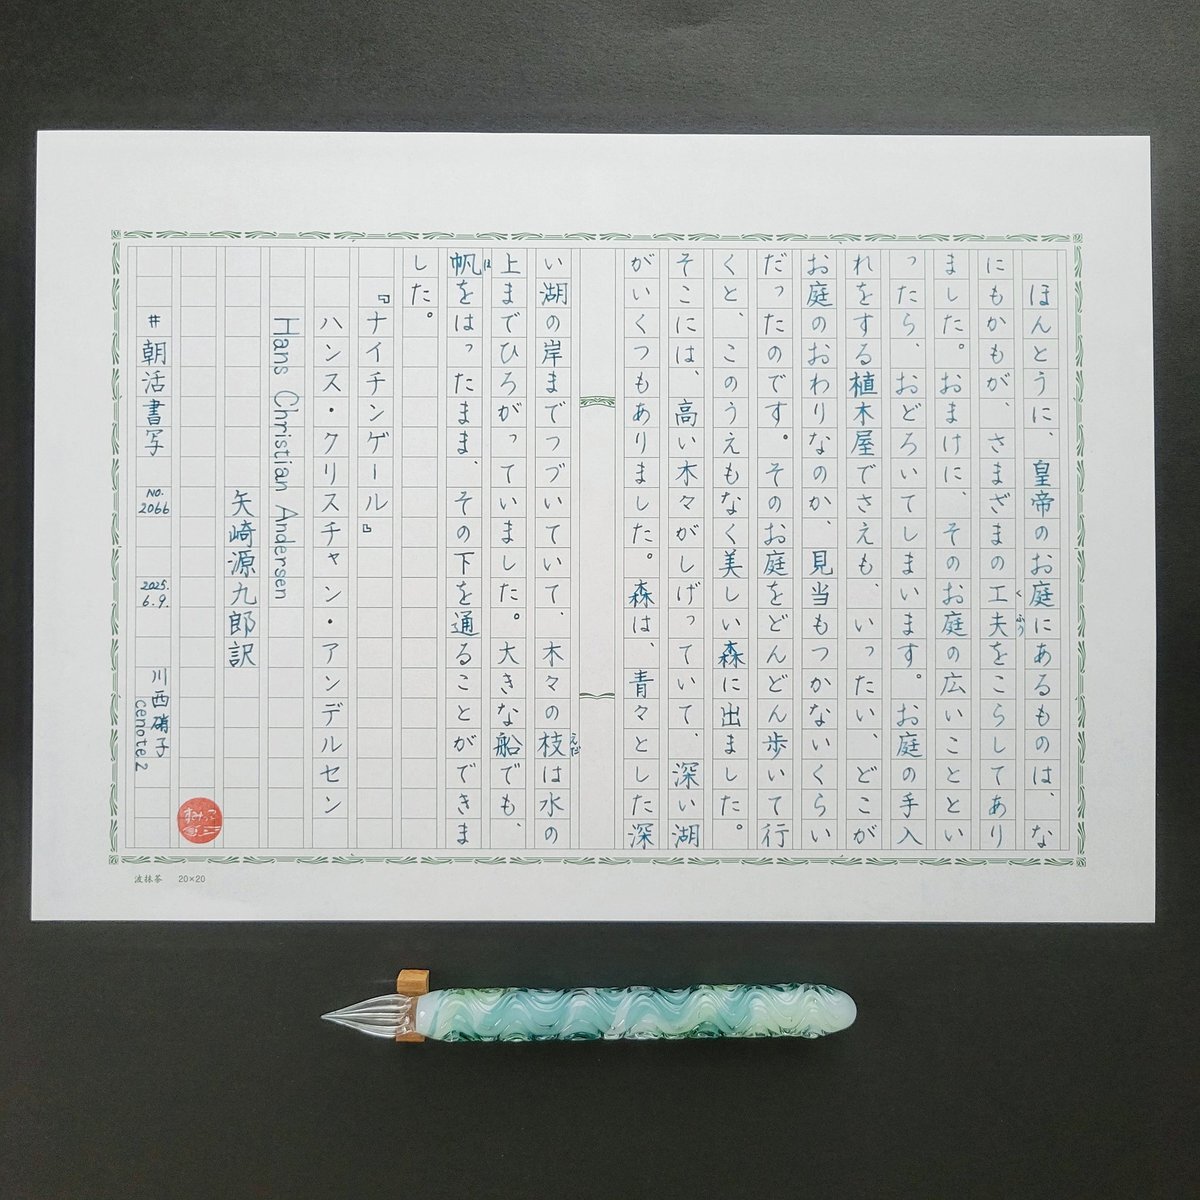 ほんとうに、皇帝のお庭にあるものは、な
にもかもが、さまざまの工夫をこらしてあり
くふう
ました。おまけに、そのお庭の広いこととい
ったら、おどろいてしまいます。お庭の手入
れをする植木屋でさえも、いったい、どこが
お庭のおわりなのか、見当もつかないくらい
だったのです。そのお庭をどんどん歩いて行
くと、このうえもなく美しい森に出ました。
そこには、高い木々がしげっていて、深い湖
がいくつもありました。森は、青々とした深
い湖の岸までつづいていて、木々の枝は水の
えだ
上までひろがっていました。大きな船でも、
帆をはったまま、その下を通ることができま
ほ
した。
『ナイチンゲール』
ハンス・クリスチャン・アンデルセン
Hans Christian Andersen
矢崎源九郎訳
#朝活書写 No.2066 2025.6.9. 川西硝子
cenote2
波抹茶 20×20